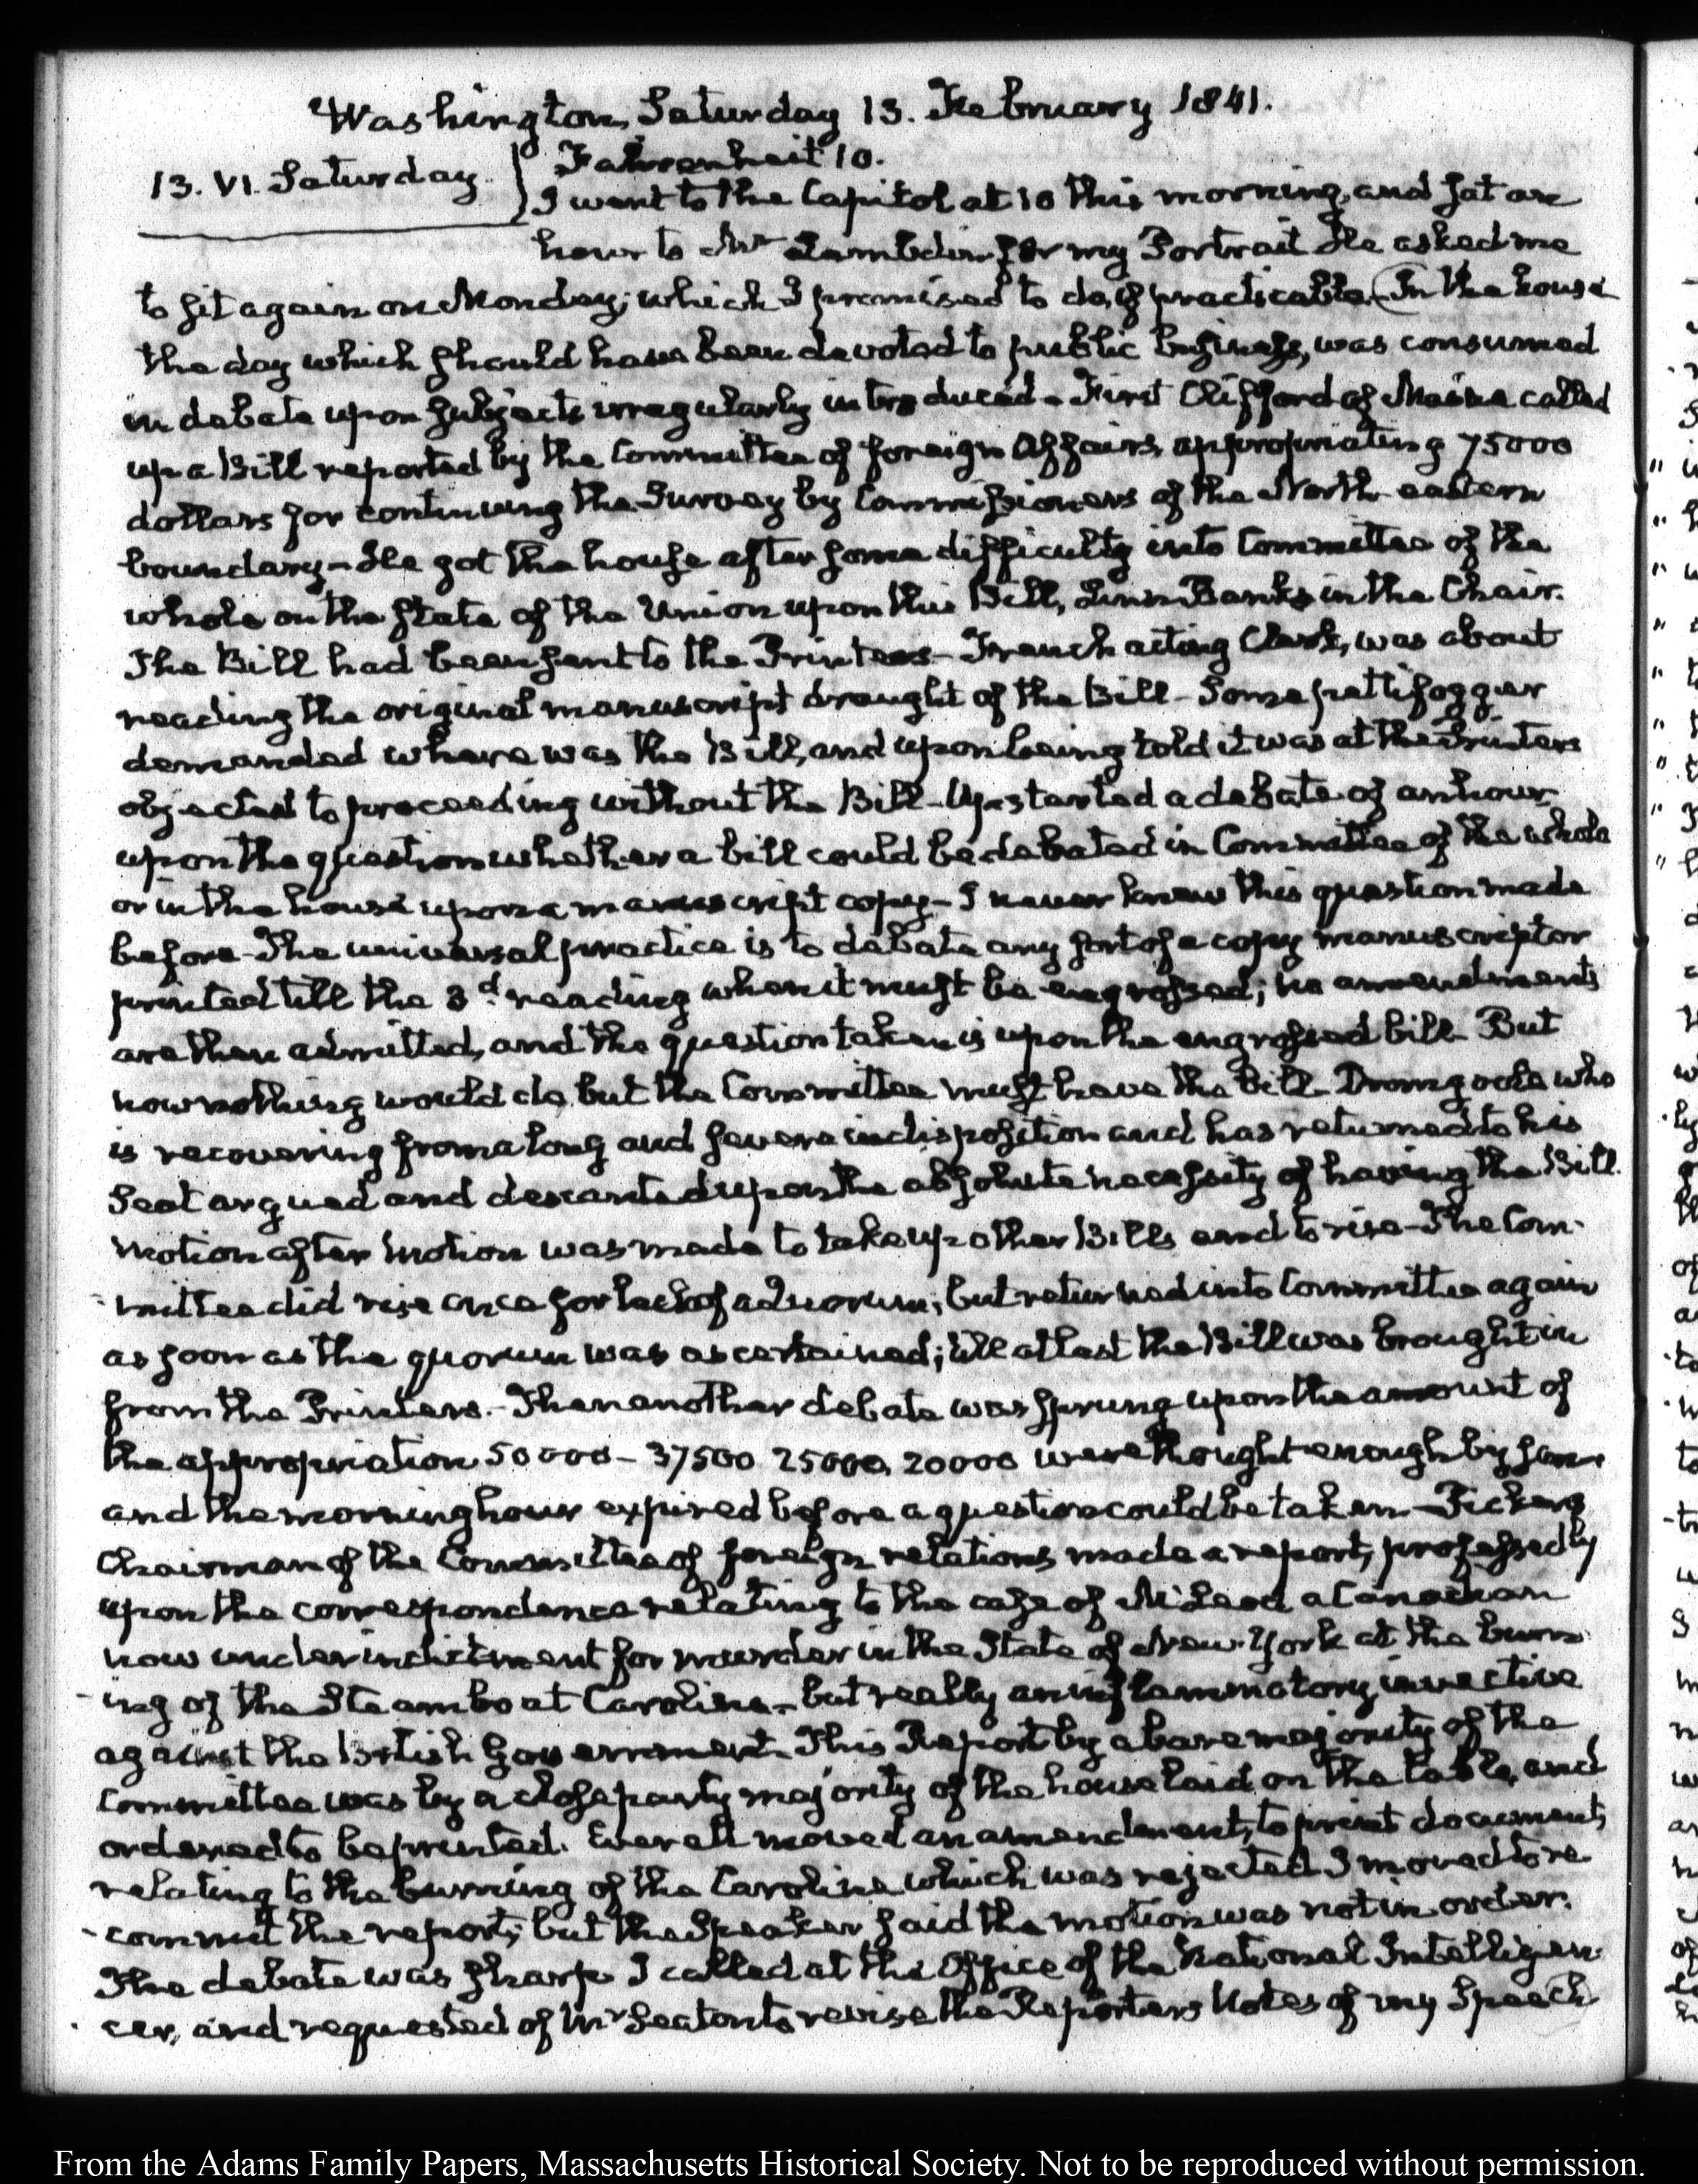 Washington, Saturday 13. February 1841.
13. VI. Saturday.
Fahrenheit 10.
I went to the Capitol at 10 this morning, and sat an
hour to Mr Lambdin for my Portrait He asked me
to sit again on Monday; which I promised to do, if practicable. (In the house
the day which should have been devoted to public business, was consumed
in debate upon subjects irregularly introduced. First Clifford of Maine called
up a Bill reported by the Committee of foreign Affairs, appropriating 75000
dollars for continuing the Survey by Commissioners of the North-eastern
boundary- He got the house after some difficulty into Committee of the
whole on the state of the Union upon this Bill, Linn Banks in the Chair.
The Bill had been sent to the Printers- French acting Clerk, was about
reading the original manuscript draught of the Bill- Some pettifogger
demanded where was the Bill, and upon being told it was at the Printers
objected to proceeding without the Bill- Up started a debate of an hour
upon the question whether a bill could be debated in Committee of the whole
or in the house upon a manuscript copy- I never knew this question made
before- The universal practice is to debate any sort of a copy manuscript or
printed till the 3d. reading when it must be engrossed; no amendments
are then admitted, and the question taken is upon the engrossed bill- But
now nothing would do but the Committee must have the Bill- Dromgoole who
is recovering from a long and severe indisposition and has returned to his
Seat argued and descanted upon the absolute necessity of having the Bill.
Motion after motion was made to take up other Bills and to rise- The Com-
-mittee did rise once for lack of a Quorum; but returned into Committee again
as soon as the quorum was ascertained; till at last the Bill was brought in
from the Printers.- Then another debate was sprung upon the amount of
the appropriation 50000- 37500 25000, 20000 were thought enough by some
and the morning hour expired before a question could be taken- Pickens
Chairman of the Committee of foreign relations made a report, professedly
upon the correspondence relating to the case of McLeod a Canadian
now under indictment for murder in the State of New-York at the burn-
-ing of the Steamboat Caroline- but really an inflammatory invective
against the British Government. This Report by a bare majority of the
Committee was by a close party majority of the house laid on the table, and
ordered to be printed. Everett moved an amendment, to print documents
relating to the burning of the Caroline which was rejected I moved to re-
-commit the report; but the Speaker said the motion was not in order.
The debate was sharp. I called at the Office of the National Intelligen-
-cer, and requested of Mr Seaton to revise the Reporters Notes of my Speech
From the Adams Family Papers, Massachusetts Historical Society. Not to be reproduced without permission.